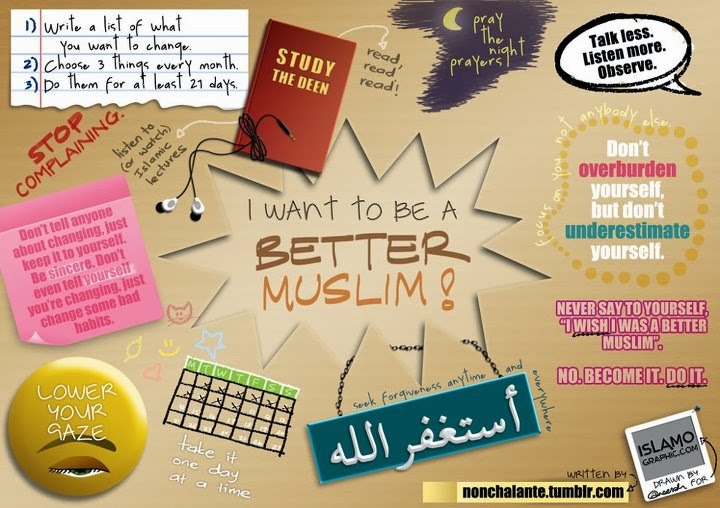 1) Write a list of what
you want to change.
2) Choose 3 things every month.
3) Do them for at least 21 days.
STUDY
THE DEEN
read,
read,
read!
pray
the
night
prayers!
Talk less.
Listen more.
Observe.
STOP
COMPLAINING.
listen to
(or watch)
Islamic
lectures
focus on you not anybody else
Don't
overburden
yourself,
but don't
underestimate
yourself.
Don't tell anyone
about changing, just
keep it to yourself.
Be sincere. Don't
even tell yourself
you're changing, just
change some bad
habits.
I WANT TO BE A
BETTER
MUSLIM!
NEVER SAY TO YOURSELF,
"I WISH I WAS A BETTER
MUSLIM".
NO. BECOME IT. DO IT.
LOWER
YOUR
GAZE
M T W T F S S
take it
one day
at a time
seek forgiveness anytime and everywhere
أستغفر الله
ISLAMO
GRAPHIC.COM
WRITTEN BY
DRAWN BY
FOR
nonchalante.tumblr.com